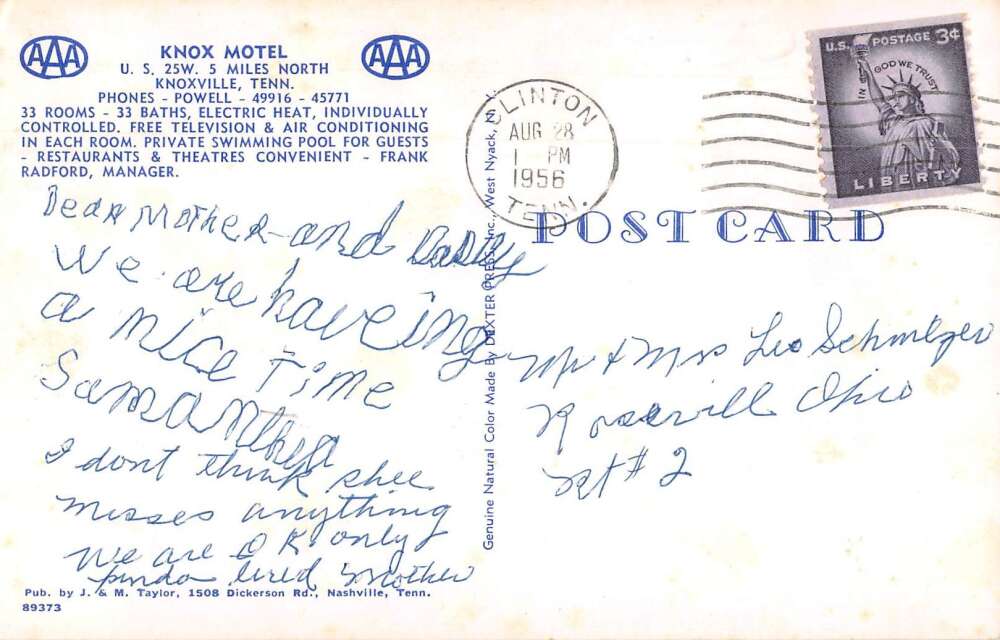 AAA
KNOX MOTEL
AAA
U. S. 25W. 5 MILES NORTH
KNOXVILLE, TENN.
PHONES - POWELL - 49916 - 45771
33 ROOMS - 33 BATHS, ELECTRIC HEAT, INDIVIDUALLY
CONTROLLED. FREE TELEVISION & AIR CONDITIONING
IN EACH ROOM. PRIVATE SWIMMING POOL FOR GUESTS
- RESTAURANTS & THEATRES CONVENIENT - FRANK
RADFORD, MANAGER.
Dear Mother and Daddy
We are haveing
a nice time
Samantha
I dont think shee
misses anything
We are O K only
kinda tired Mother
Pub. by J. & M. Taylor, 1508 Dickerson Rd., Nashville, Tenn.
89373
Genuine Natural Color Made By DEXTER PRESS, Inc., West Nyack, N. Y.
CLINTON
AUG 28
1 PM
1956
TENN.
U.S. POSTAGE 3¢
IN GOD WE TRUST
LIBERTY
POST CARD
Mr & Mrs Leo Schmelzer
Roseville Ohio
Rt # 2